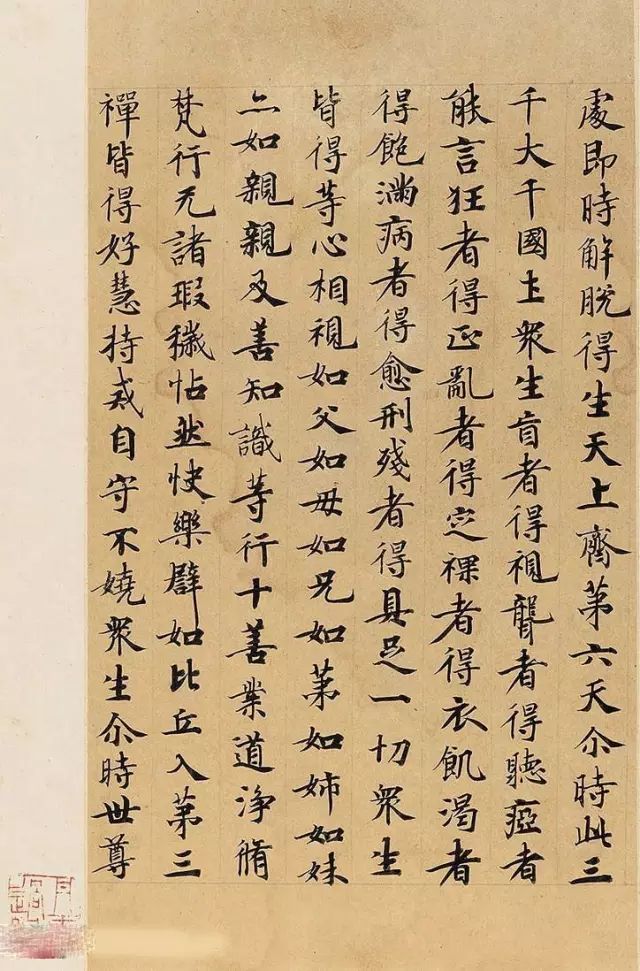 處即時解脫得生天上齊第六天尒時此三
千大千國土衆生盲者得視聾者得聽瘂者
能言狂者得正亂者得定祼者得衣飢渴者
得飽滿病者得愈刑殘者得具足一切衆生
皆得等心相視如父如母如兄如苐如姉如妹
亦如親親及善知識等行十善業道淨脩
梵行无諸瑕穢怗然快樂辟如比丘入第三
禪皆得好慧持戒自守不嬈衆生尒時世尊